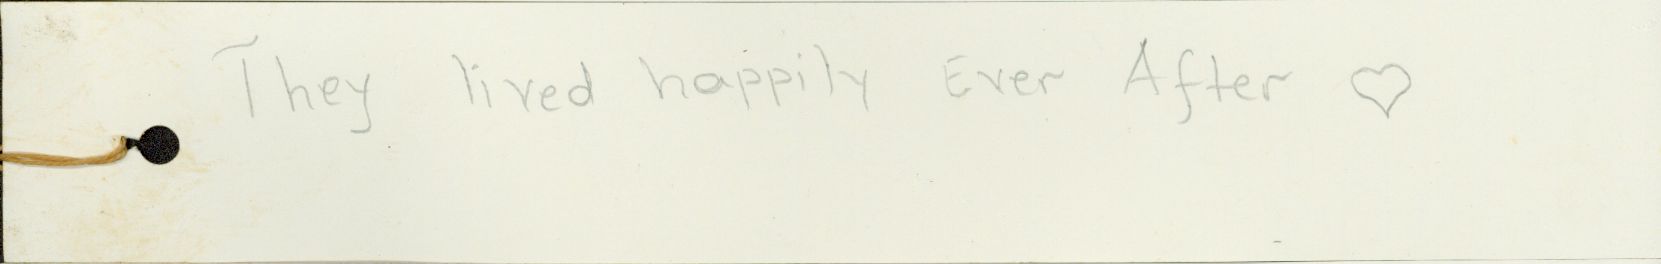 They lived happily Ever After ♡